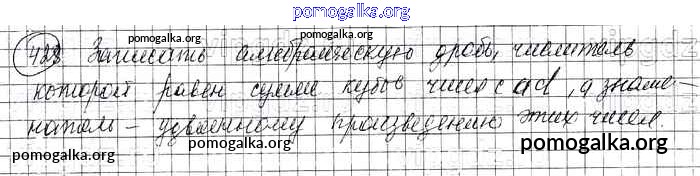 pomogalka.org
428 Записать алгебраическую дробь, числитель
pomogalka.org
которой равен сумме кубов чисел c и d, а знаме-
pomogalka.org
натель – удвоенному произведению этих чисел.
pomogalka.org pomogalka.org